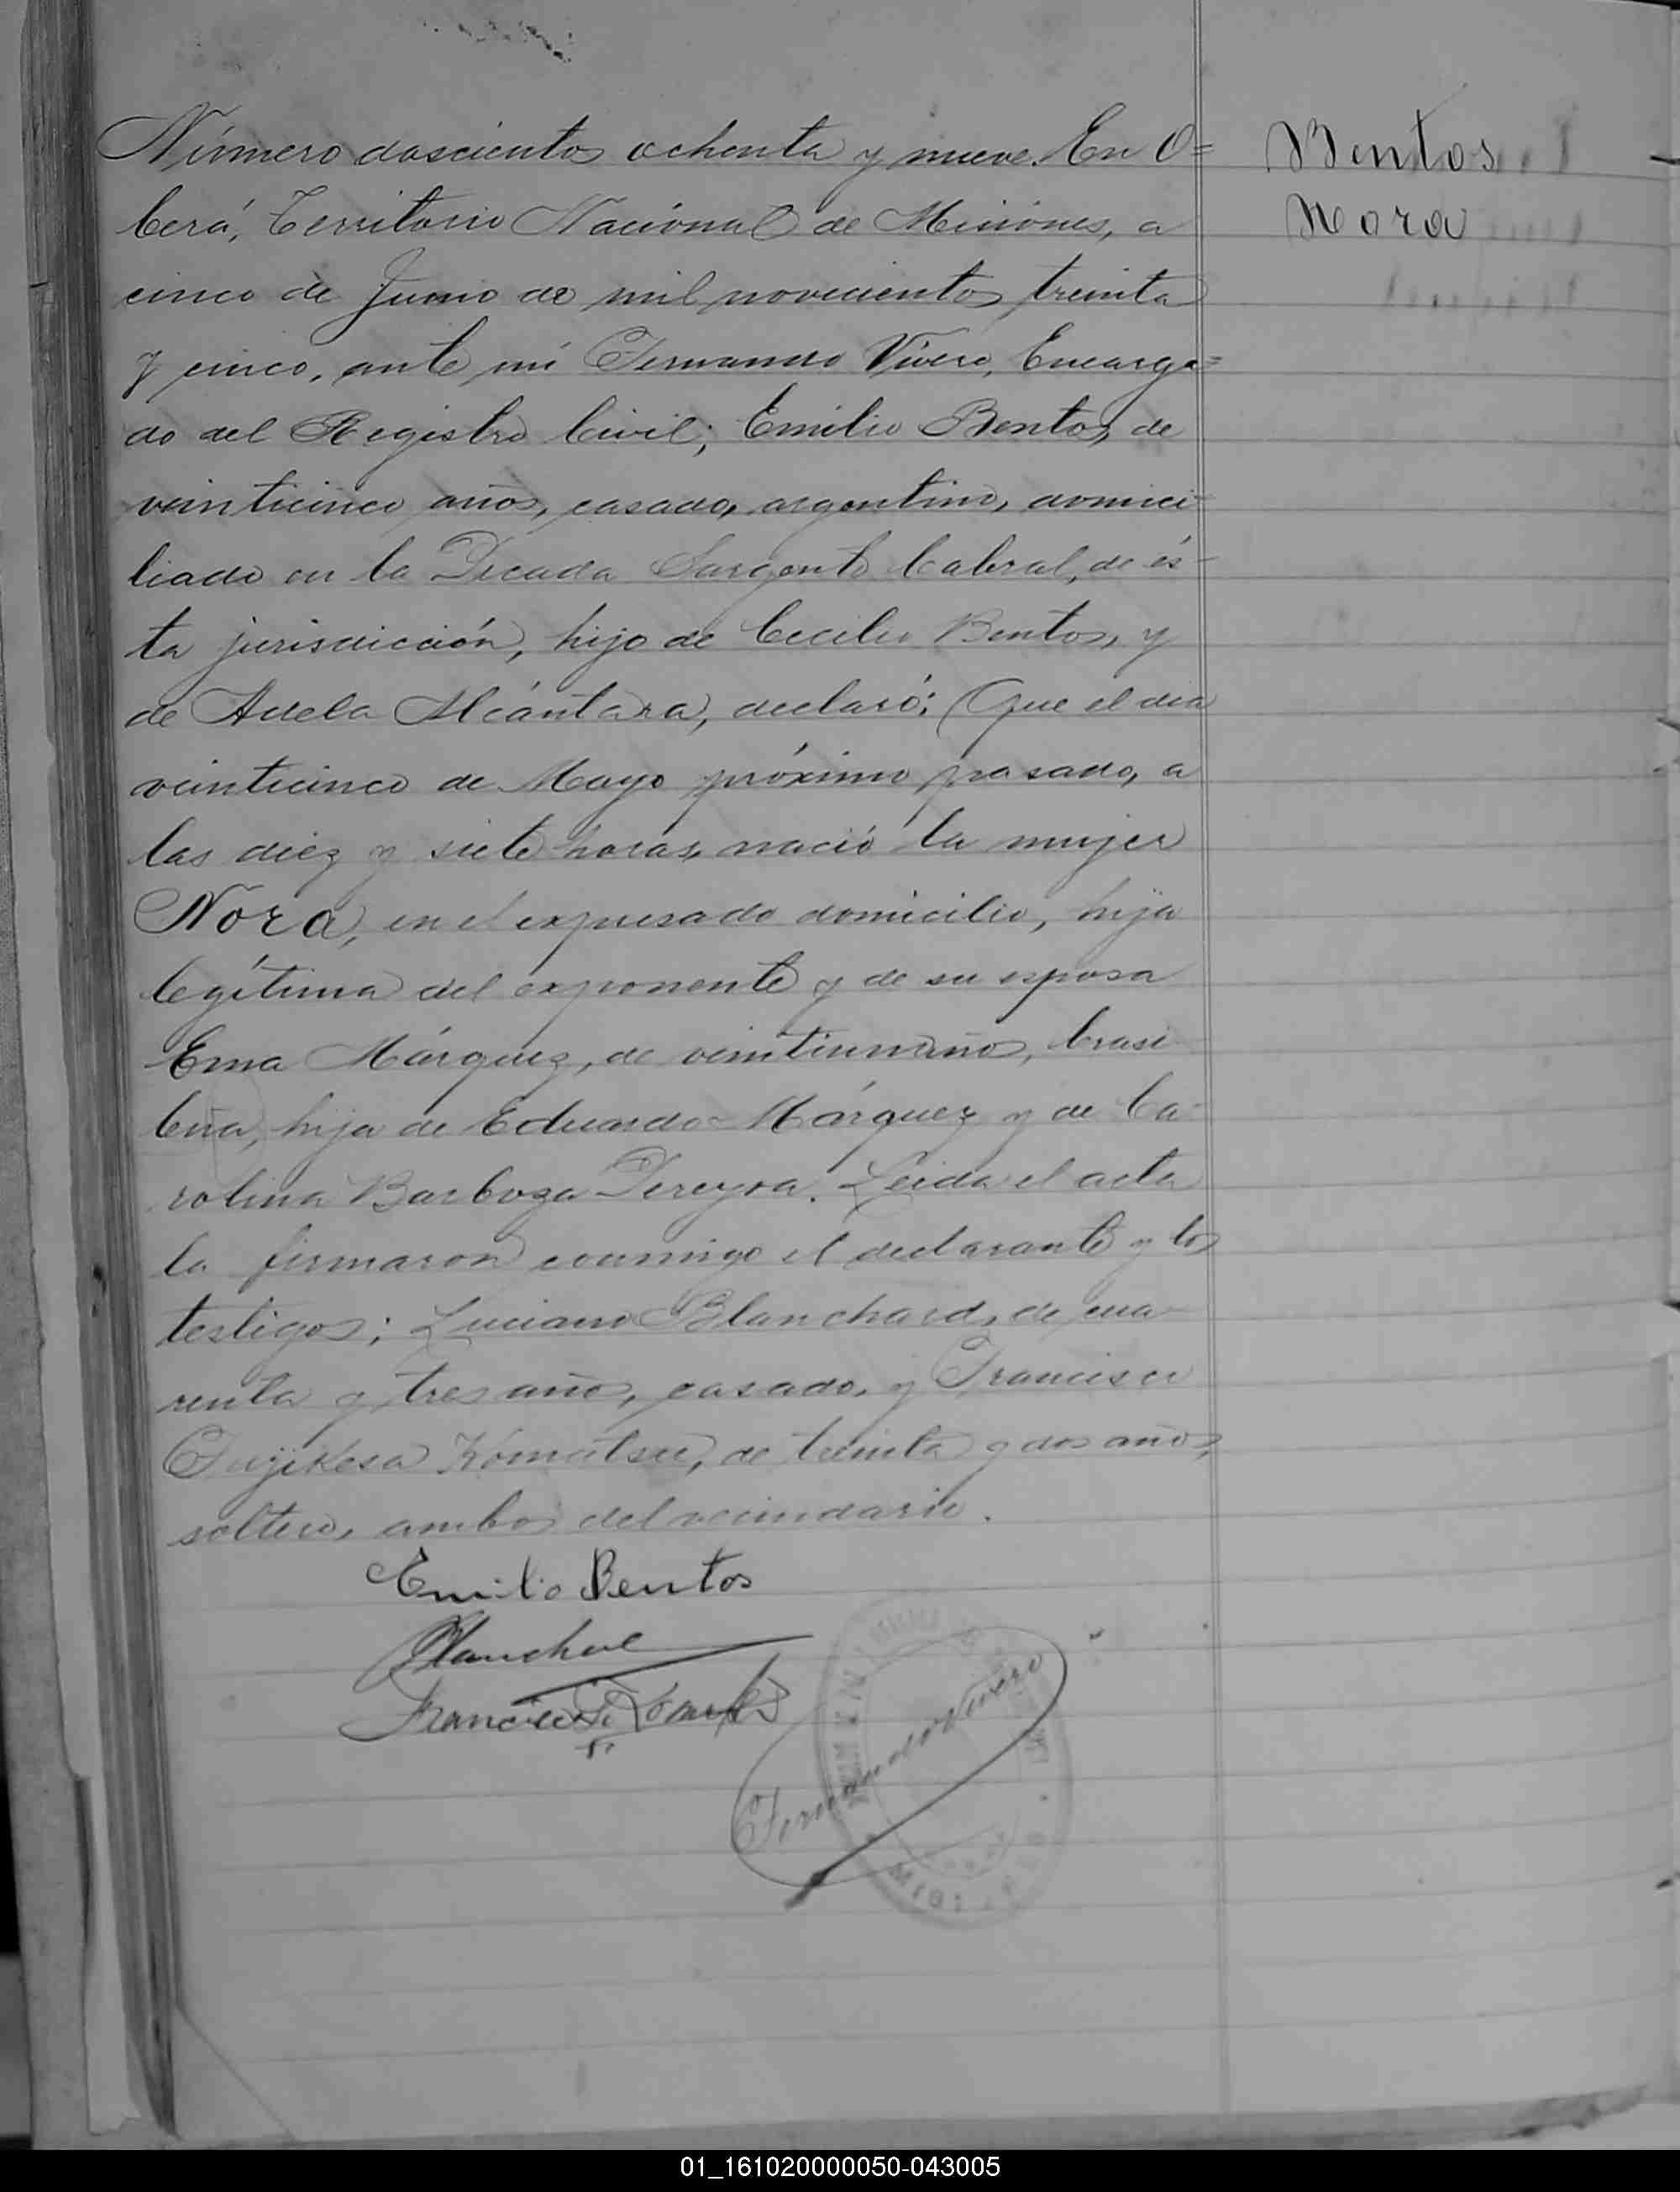 Número doscientos ochenta y nueve. En O=
berá, Territorio Nacional de Misiones, a
cinco de Junio de mil novecientos treinta
y cinco, ante mí Fernando Vivero, Encarga=
do del Registro Civil; Emilio Bentos, de
veinticinco años, casado, argentino, domici-
liado en la Picada Sargento Cabral, de és-
ta jurisdicción, hijo de Cecilio Bentos, y
de Adela Alcántara, declaró: Que el día
veinticinco de Mayo próximo pasado, a
las diez y siete horas, nació la mujer
Nora, en el expresado domicilio, hija
legítima del exponente y de su esposa
Ema Márquez, de veintiun años, brasi-
leña, hija de Eduardo Márquez y de Ca-
rolina Barboza Pereyra. Leída el acta
la firmaron conmigo el declarante y los
testigos; Luciano Blanchard, de cua-
renta y tres años, casado, y Francisco
Fujikesa Komatsu, de treinta y dos años,
soltero, ambos del vecindario.
Emilio Bentos
Francisco
Fernando Vivero
Bentos
Nora
01_161020000050-043005